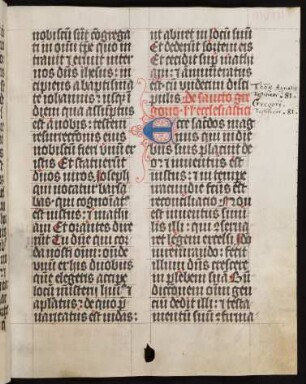 nobiscū sūt cōgrega
ti in om̄i tp̄e quo in
trauit ⁊ exiuit inter
nos dn̄s ihesus: in
cipiens a baptisma
te iohannis: usqꝫ ī
diem qua assūptus
est a nobis: testem
resurrectionis eius
nobiscū fieri unū ex
istis Et statuerūt
duos uiros, ioseph
qui uocatur barsa
bas: qui cognoīat9
est iustus: ⁊ mathi
am Et orantes dixe
rūt Tu dn̄e qui cor
da nosti oīm: oste
de quē elegeris accipe
locū misterii hui9 ⁊
aplatus: de quo p̄
uaricatus est iudas:
ut abiret in locū suū
Et dederūt sortem eis
Et cecidit sup mathi
am: ⁊ annumeratus
est cū undecim disci
pulis De sancto gre
gorio
Ecce sacdos mag
nus qui in die
bus suis placuit de
o: ⁊ inuentus est
iustus: ⁊ in tempe
iracundie factus est
reconciliatio Nō est
inuentus simi
lis illi: qui cōserua
ret legem excelsi Ideo
iureiurando: fecit
illum dn̄s crescere
in plebem suā Be
dictionem om̄iū gen
ciū dedit illi: ⁊ testa
mentū suū ⁊firma